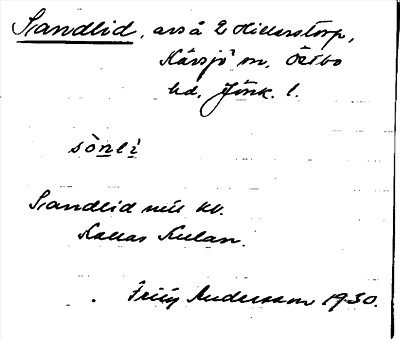 Sandlid, avs å 2 Hillerstorp,
Kävsjö sn, Östbo
hd, Jönk. l.
sònlì
Sandlid
Kallas Kulan.
Andersson 1930.